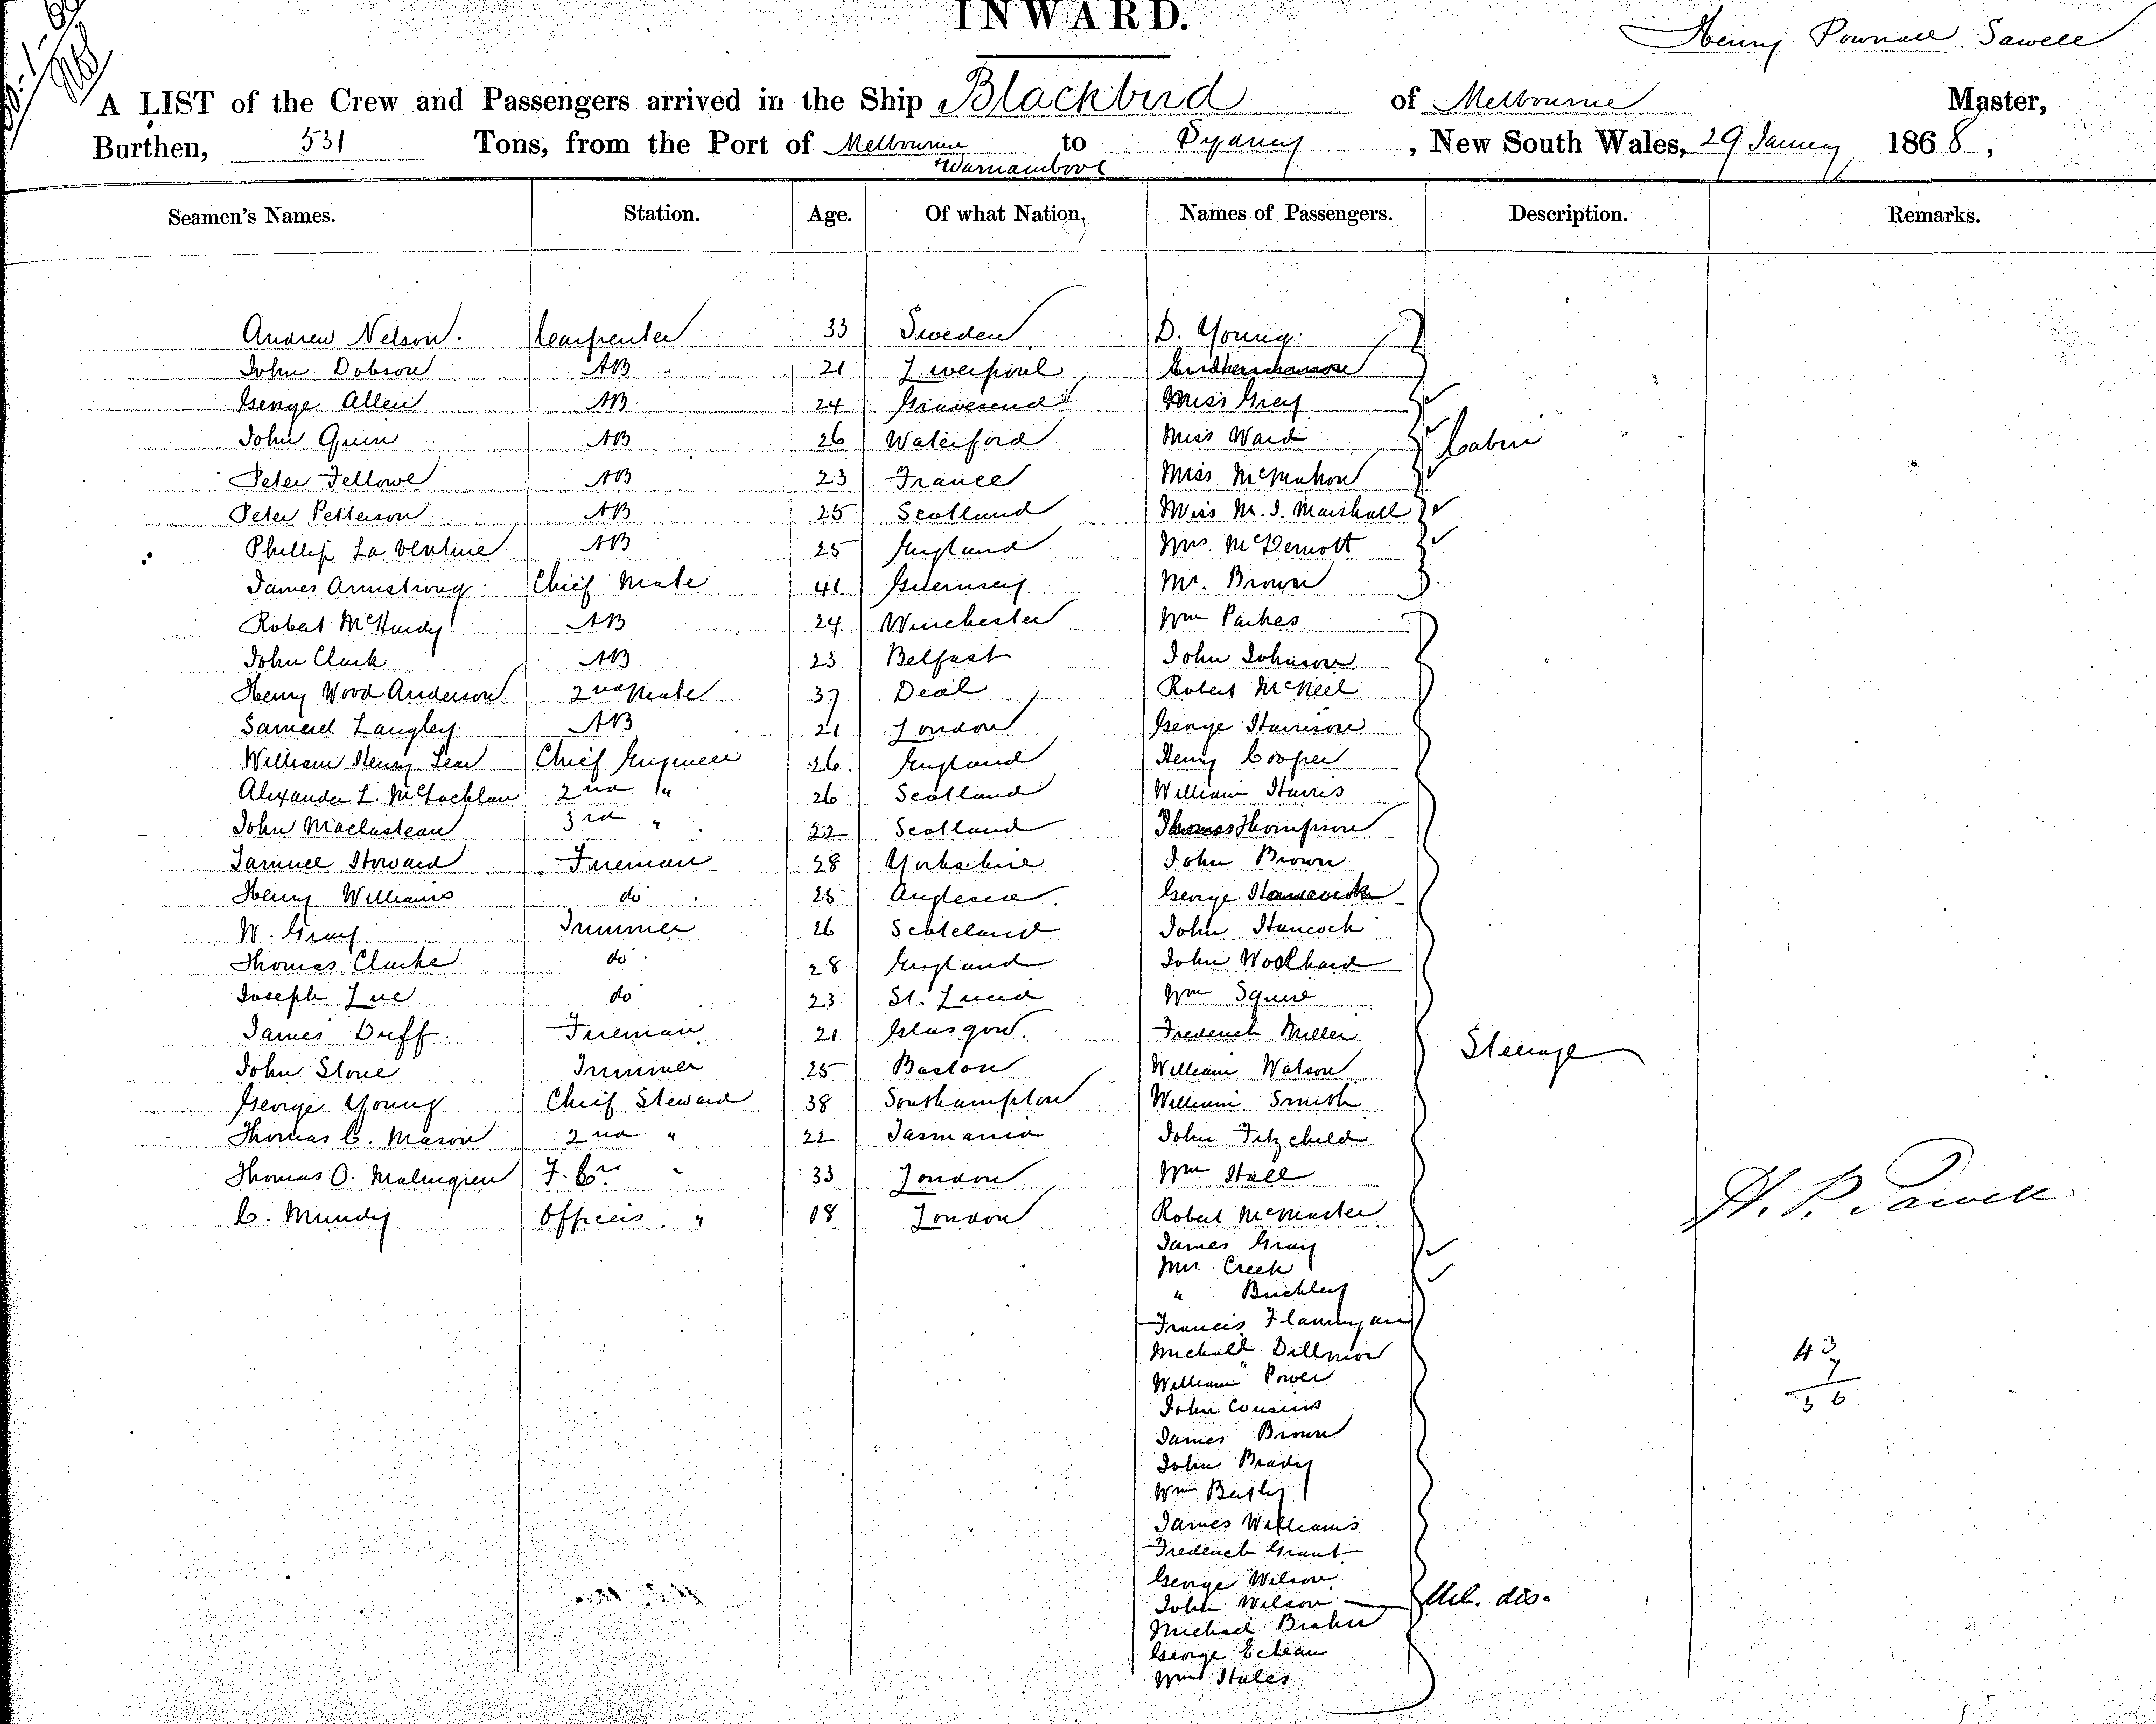 INWARD.
Henry Pownall Sawell
A LIST of the Crew and Passengers arrived in the Ship Blackbird of Melbourne Master,
Burthen, 531 Tons, from the Port of Melbourne to Sydney, New South Wales, 29 January 1868,
Warnambool
Seamen's Names. Station. Age. Of what Nation, Names of Passengers. Description. Remarks.
Andrew Nelson. Carpenter 33 Sweden D. Young
John Dobson AB 21 Liverpool
George Allen AB 24 Gravesend Miss Grey
John Quin AB 26 Waterford Miss Ward Cabin
Peter Fellowe AB 23 France Miss McMahon
Peter Petterson AB 25 Scotland Miss M. J. Marshall
Phillip La Ventine AB 25 England Mrs. McDermott
James Armstrong Chief Mate 41 Guernsey Mr. Brown
Robert McHardy AB 24 Winchester Wm Parkes
John Clark AB 23 Belfast John Johnson
Henry Wood Anderson 2nd Mate 37 Deal Robert McNeel
Samuel Langley AB 21 London George Harrison
William Henry Lear Chief Engineer 26 England Henry Cooper
Alexander L. McLachlan 2nd " 26 Scotland William Harris
John Maclustean 3rd " 22 Scotland Thomas Thompson
Samuel Howard Fireman 28 Yorkshire John Brown
Henry Williams do 25 George
W. Gray Trimmer 26 Scoteland John Hancock
Thomas Clarke do 28 England John Woolhard
Joseph Luc do 23 St. Lucia Wm Squire
James Duff Fireman 21 Glasgow Frederick Miller
Steerage
John Stone Trimmer 25 Boston William Watson
George Young Chief Steward 38 Southampton William Smith
Thomas C. Mason 2nd " 22 Tasmania John Fitzchild
Thomas O. Malmgren F. Cn " 33 London Wm Hall
H. P. Sawell
C. Mundy Officers " 18 London Robert McMaster
James Gray
Mrs Creek
" Buckley
Francis Flannigan
Michall Dillmon
43
William Power
7
John Cousins
36
James Brown
John Brady
Wm Bagley
James Williams
Frederick Grant
George Wilson
John Wilson Mel. dis.
Michael Brahn
George
Wm Hales